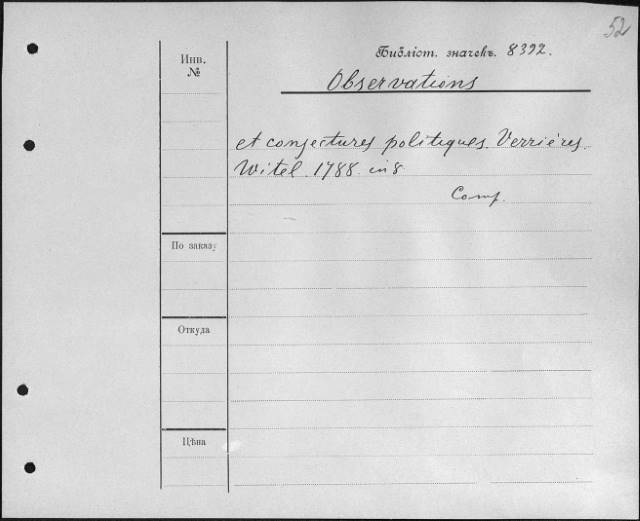 52
Библіот. значекъ. 8392.
Инв.
№
Observations
et conjectures politiques. Verrières.
Witel. 1788. in 8
Comp.
По заказу
Откуда
Цѣна